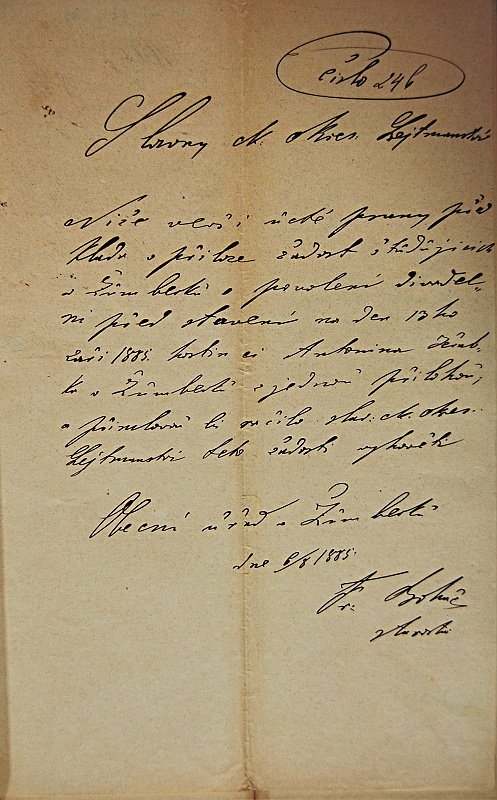 číslo 246
Slavný ck. okres. Hejtmanství
Níže v úctě psaný před
kládá v příloze žádost študujících
v Žumberku o povolení divadel-
ní představení na den 13ho
září 1885. hostinci Antonína
v Žumberku s jednou přílohou,
a přimlouvá by ráčilo slav. ck. okres.
Hejtmanství této žádosti vyhověti
Obecní úřad v Žumberku
dne 6/8 1885.
Fr.
starosta